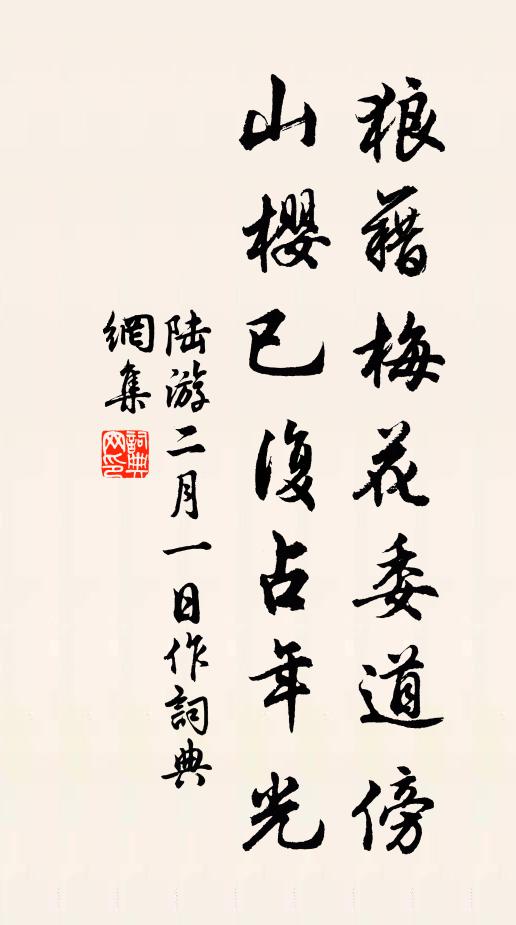 狼藉梅花委道傍
山櫻已復占年光
陸游二月一日作詞典
網集
詞典
网印